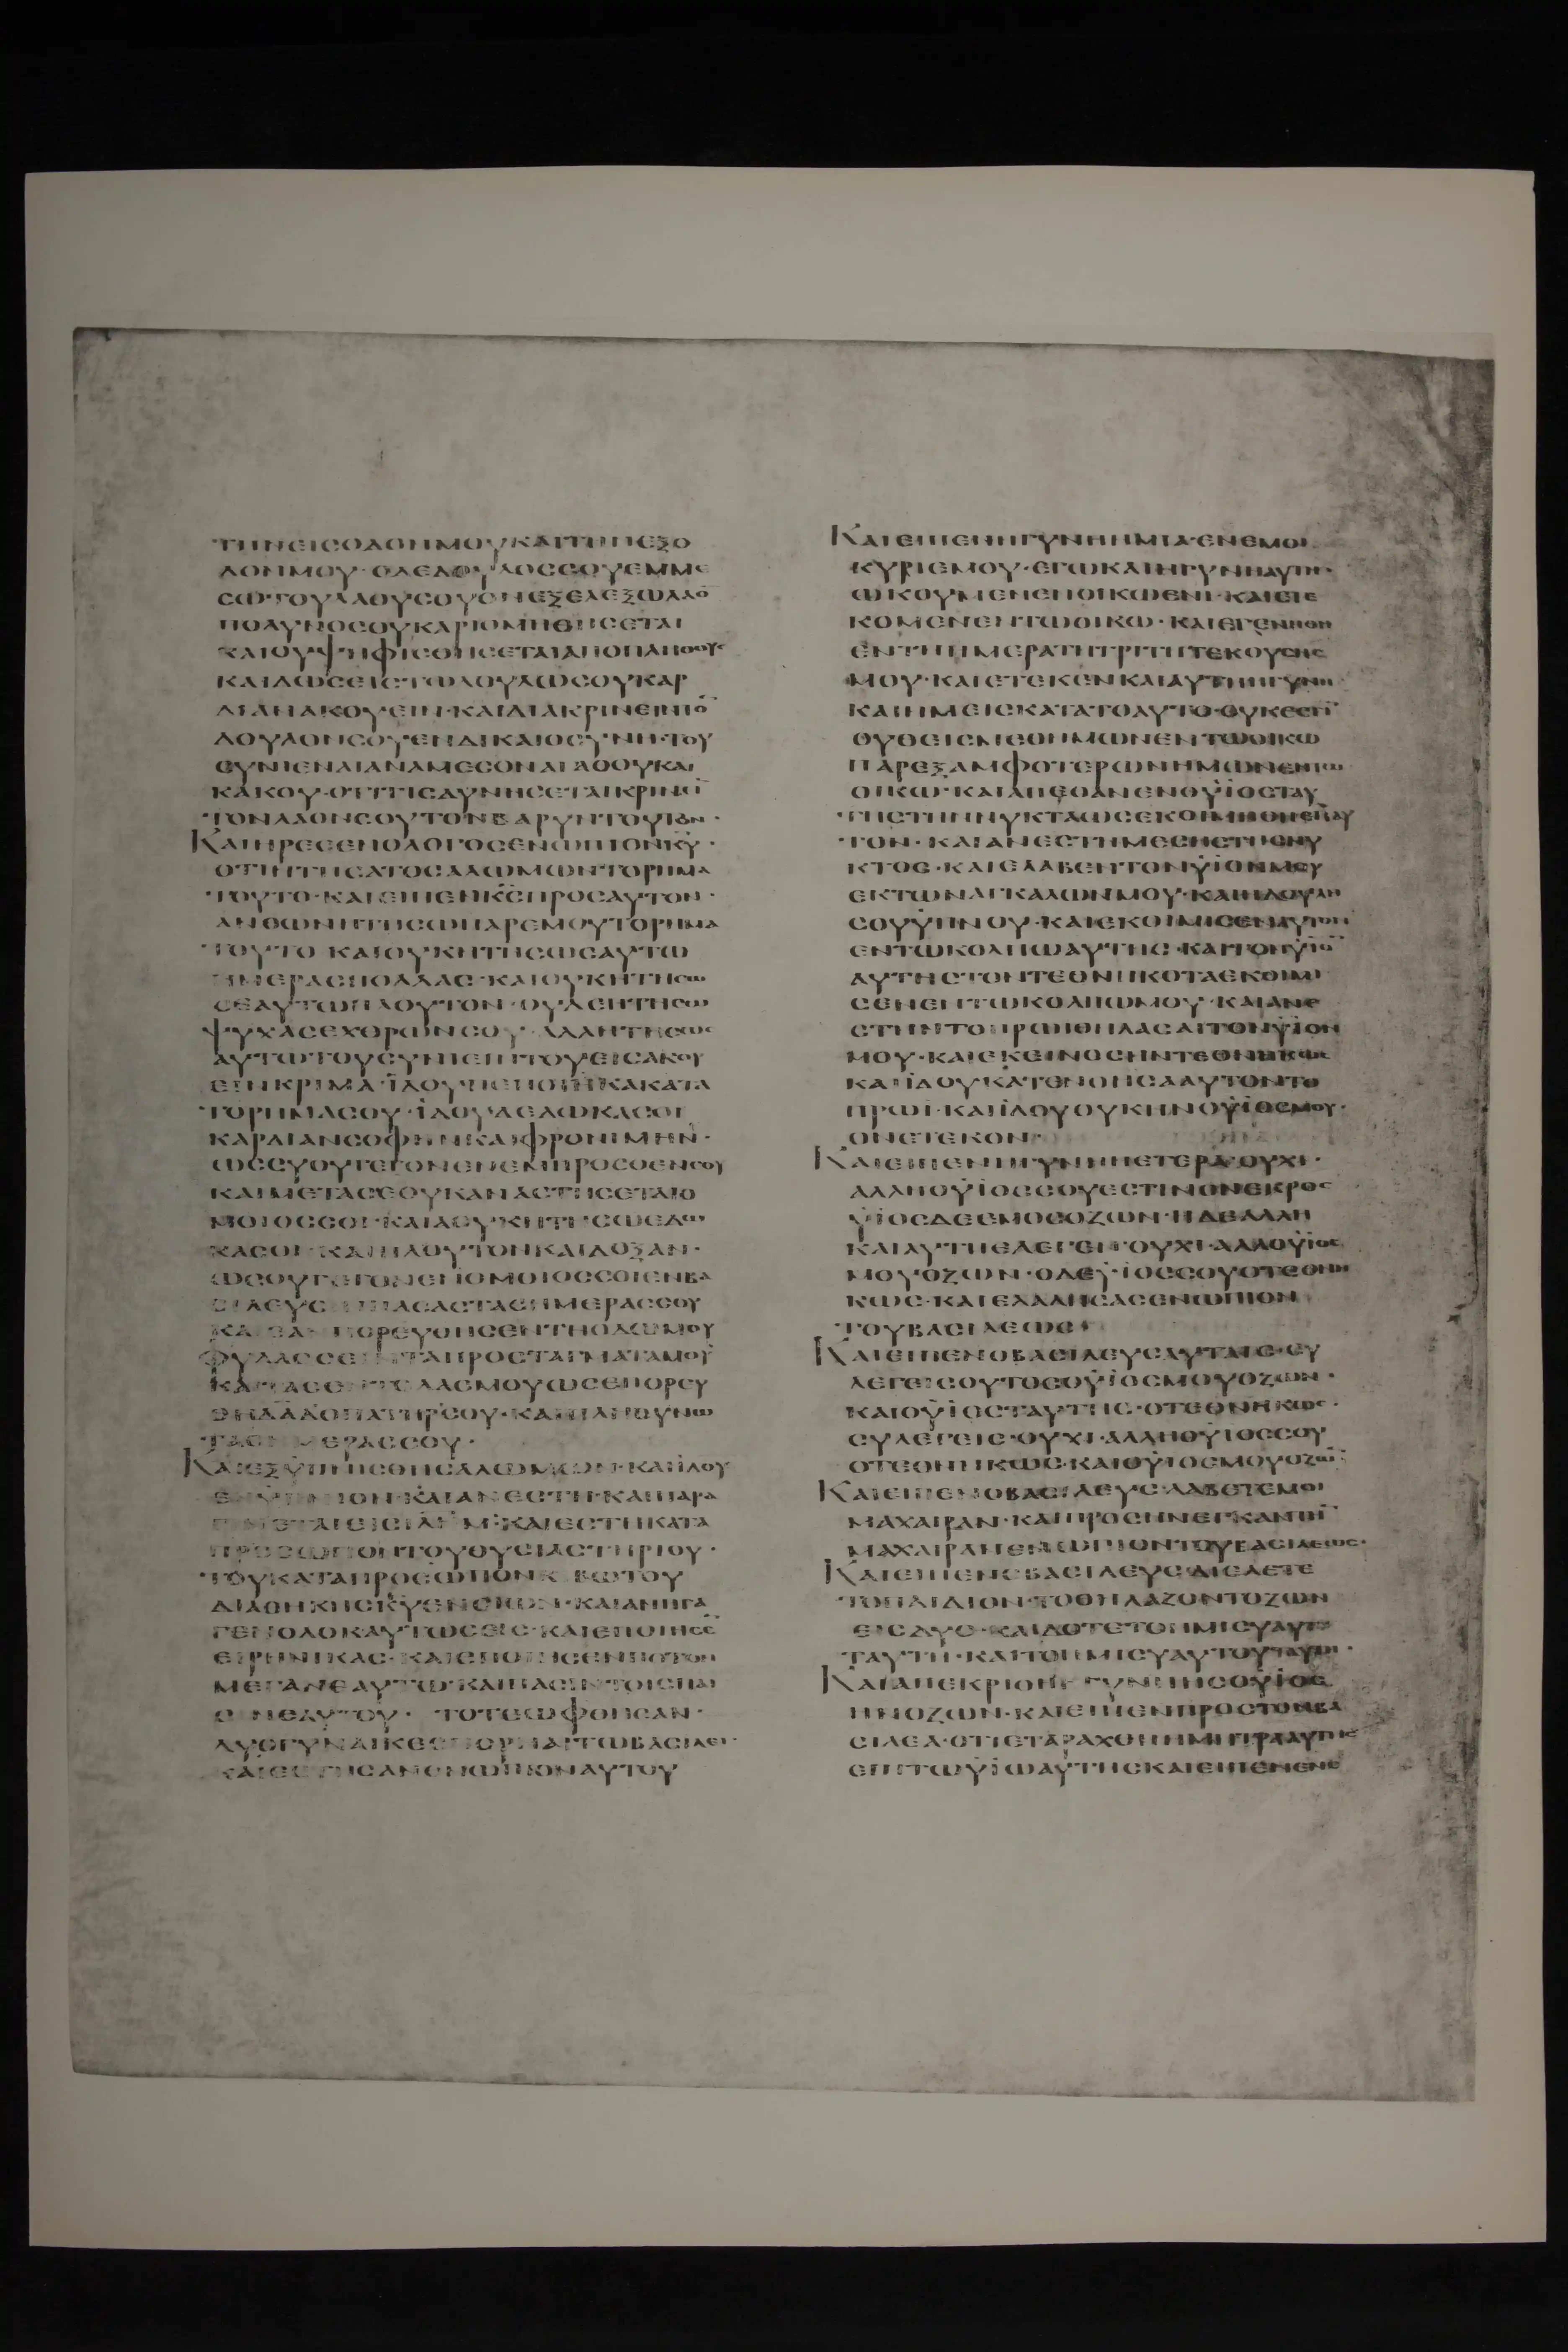 ΤΗΝΕΙCΟΔΟΝΜΟΥΚΑΙΤΗΝΕΞΟ
ΔΟΝΜΟΥ· ΟΔΕΔΟΥΛΟCCΟΥΕΜΜΕ
CΩ·ΤΟΥΛΑΟΥCΟΥΟΝΕΞΕΛΕΞΩΛΑΟ̅
ΠΟΛΥΝΟCΟΥΚΑΡΙΘΜΗΘΗCΕΤΑΙ
ΚΑΙΟΥΨΗΦΙCΘΗCΕΤΑΙΑΠΟΠΛΗΘΟΥC
ΚΑΙΔΩCΕΙCΤΩΔΟΥΛΩCΟΥΚΑΡ
ΔΙΑΝΑΚΟΥΕΙΝ·ΚΑΙΔΙΑΚΡΙΝΕΙΝΤΟ̅
ΛΟΥΛΟΝCΟΥΕΝΔΙΚΑΙΟCΥΝΗ·ΤΟΥ
CΥΝΙΕΝΑΙΑΝΑΜΕCΟΝΑΓΑΘΟΥΚΑΙ
ΚΑΚΟΥ·ΟΤΙΤΙCΔΥΝΗCΕΤΑΙΚΡΙΝΕΙ̅
ΤΟΝΛΑΟΝCΟΥΤΟΝΒΑΡΥΝΤΟΥΤΟΝ·
ΚΑΙΗΡΕCΕΝΟΛΟΓΟCΕΝΩΠΙΟΝΚ̅Υ̅·
ΟΤΙΗΤΗCΑΤΟCΑΛΩΜΩΝΤΟΡΗΜΑ
ΤΟΥΤΟ·ΚΑΙΕΙΠΕΝΚ̅C̅ΠΡΟCΑΥΤΟΝ·
ΑΝΘΩΝΗΤΗCΩΠΑΡΕΜΟΥΤΟΡΗΜΑ
ΤΟΥΤΟ ΚΑΙΟΥΚΗΤΗCΩCΑΥΤΩ
ΗΜΕΡΑCΠΟΛΛΑC·ΚΑΙΟΥΚΗΤΗCΩ
CΕΑΥΤΩΠΛΟΥΤΟΝ·ΟΥΔΕΗΤΗCΩ
ΨΥΧΑCΕΧΘΡΩΝCΟΥ·ΑΛΛΗΤΗCΩC
ΑΥΤΩΤΟΥCΥΝΙΕΙΝΤΟΥΕΙCΑΚΟΥ
ΕΙΝΚΡΙΜΑ·ΪΔΟΥΠΕΠΟΙΗΚΑΚΑΤΑ
ΤΟΡΗΜΑCΟΥ·ΪΔΟΥΔΕΔΩΚΑCΟΙ
ΚΑΡΔΙΑΝCΟΦΗΝΚΑΙΦΡΟΝΙΜΗΝ·
ΩCCΥΟΥΓΕΓΟΝΕΝΕΜΠΡΟCΘΕΝCΟΥ
ΚΑΙΜΕΤΑCΕΟΥΚΑΝΑCΤΗCΕΤΑΙΟ
ΜΟΙΟCCΟΙ·ΚΑΙΑΟΥΚΗΤΗCΩΕΔΩ
ΚΑCΟΙ·ΚΑΙΠΛΟΥΤΟΝΚΑΙΔΟΞΑΝ·
ΩCΟΥΓΕΓΟΝΕΝΟΜΟΙΟCCΟΙΕΝΒΑ
CΙΛΕΥCΙΝΠΑCΑCΤΑCΗΜΕΡΑCCΟΥ
ΚΑΙΕΑΝΠΟΡΕΥΘΗCΕΝΤΗΟΔΩΜΟΥ
ΦΥΛΑCCΕΙΝΤΑΠΡΟCΤΑΓΜΑΤΑΜΟΥ
ΚΑΙΤΑCΕΝΤΟΛΑCΜΟΥΩCΕΠΟΡΕΥ
ΘΗΔΑ̅Δ̅ΟΠΑΤΗΡCΟΥ·ΚΑΙΠΛΗΘΥΝΩ
ΤΑCΗΜΕΡΑCCΟΥ·
ΚΑΙΕΞΫΠΝΗCΘΗCΑΛΩΜΩΝ·ΚΑΙΪΔΟΥ
ΕΝΫΠΝΙΟΝ·ΚΑΙΑΝΕCΤΗ·ΚΑΙΠΑΡΑ
ΓΙΝΕΤΑΙΕΙCΙΛΗΜ·ΚΑΙΕCΤΗΚΑΤΑ
ΠΡΟCΩΠΟΝΤΟΥΘΥCΙΑCΤΗΡΙΟΥ·
ΤΟΥΚΑΤΑΠΡΟCΩΠΟΝΚΙΒΩΤΟΥ
ΔΙΑΘΗΚΗCΚ̅Υ̅ΕΝCΙΩΝ·ΚΑΙΑΝΗΓΑ
ΓΕΝΟΛΟΚΑΥΤΩCΕΙC·ΚΑΙΕΠΟΙΗCΕ̅
ΕΙΡΗΝΙΚΑC·ΚΑΙΕΠΟΙΗCΕΝΠΟΤΟΝ
ΜΕΓΑΝΕΑΥΤΩ·ΚΑΙΠΑCΙΝΤΟΙCΠΑΙ
CΙΝΕΑΥΤΟΥ· ΤΟΤΕΩΦΘΗCΑΝ·
ΔΥΟΓΥΝΑΙΚΕCΠΟΡΝΑΙΤΩΒΑCΙΛΕΙ·
ΚΑΙΕCΤΗCΑΝΕΝΩΠΙΟΝΑΥΤΟΥ
ΚΑΙΕΙΠΕΝΗΓΥΝΗΗΜΙΑ·ΕΝΕΜΟΙ
ΚΥΡΙΕΜΟΥ·ΕΓΩΚΑΙΗΓΥΝΗΑΥΤΗ·
ΩΚΟΥΜΕΝΕΝΟΙΚΩΕΝΙ·ΚΑΙΕΤΕ
ΚΟΜΕΝΕΝΤΩΟΙΚΩ·ΚΑΙΕΓΕΝΗΘΗ
ΕΝΤΗΗΜΕΡΑΤΗΤΡΙΤΗΤΕΚΟΥCΗC
ΜΟΥ·ΚΑΙΕΤΕΚΕΝΚΑΙΑΥΤΗΗΓΥΝΗ
ΚΑΙΗΜΕΙCΚΑΤΑΤΟΑΥΤΟ·ΟΥΚΕCΤΙ̅
ΟΥΘΕΙCΜΕΘΗΜΩΝΕΝΤΩΟΙΚΩ
ΠΑΡΕΞΑΜΦΟΤΕΡΩΝΗΜΩΝΕΝΤΩ
ΟΙΚΩ·ΚΑΙΑΠΕΘΑΝΕΝΟΫΙΟCΤΑΥ
ΤΗCΤΗΝΝΥΚΤΑΩCΕΚΟΙΜΗΘΗΕΠΑΥ
ΤΟΝ·ΚΑΙΑΝΕCΤΗΜΕCΗCΤΗCΝΥ
ΚΤΟC·ΚΑΙΕΛΑΒΕΝΤΟΝΫΙΟΝΜΟΥ
ΕΚΤΩΝΑΓΚΑΛΩΝΜΟΥ·ΚΑΙΗΔΟΥΛΗ
CΟΥΫΠΝΟΥ·ΚΑΙΕΚΟΙΜΙCΕΝΑΥΤΟΝ
ΕΝΤΩΚΟΛΠΩΑΥΤΗC·ΚΑΙΤΟΝΫΙΟ̅
ΑΥΤΗCΤΟΝΤΕΘΝΗΚΟΤΑΕΚΟΙΜΙ
CΕΝΕΝΤΩΚΟΛΠΩΜΟΥ·ΚΑΙΑΝΕ
CΤΗΝΤΟΠΡΩΙΘΗΛΑCΑΙΤΟΝΫΙΟΝ
ΜΟΥ·ΚΑΙΕΚΕΙΝΟCΗΝΤΕΘΝΗΚΩC
ΚΑΙΪΔΟΥΚΑΤΕΝΟΗCΑΑΥΤΟΝΤΟ
ΠΡΩΙ·ΚΑΙΪΔΟΥΟΥΚΗΝΟΫΙΟCΜΟΥ·
ΟΝΕΤΕΚΟΝ
ΚΑΙΕΙΠΕΝΗΓΥΝΗΗΕΤΕΡΑ·ΟΥΧΙ·
ΑΛΛΗΟΫΙΟCCΟΥΕCΤΙΝΟΝΕΚΡΟC
ΫΙΟCΔΕΕΜΟCΟΖΩΝ·ΗΔΕΑΛΛΗ
ΚΑΙΑΥΤΗΕΛΕΓΕΝ·ΟΥΧΙ·ΑΛΛΟΫΙΟC
ΜΟΥΟΖΩΝ·ΟΔΕΫΙΟCCΟΥΟΤΕΘΝΗ
ΚΩC·ΚΑΙΕΛΑΛΗCΑCΕΝΩΠΙΟΝ
ΤΟΥΒΑCΙΛΕΩC
ΚΑΙΕΙΠΕΝΟΒΑCΙΛΕΥCΑΥΤΑΙC·CΥ
ΛΕΓΕΙCΟΥΤΟCΟΫΙΟCΜΟΥΟΖΩΝ·
ΚΑΙΟΫΙΟCΤΑΥΤΗC·ΟΤΕΘΝΗΚΩC·
CΥΛΕΓΕΙC·ΟΥΧΙ·ΑΛΛΗΟΫΙΟCCΟΥ
ΟΤΕΘΝΗΚΩC·ΚΑΙΟΫΙΟCΜΟΥΟΖΩ̅
ΚΑΙΕΙΠΕΝΟΒΑCΙΛΕΥC·ΛΑΒΕΤΕΜΟΙ
ΜΑΧΑΙΡΑΝ·ΚΑΙΠΡΟCΗΝΕΓΚΑΝΤΗ̅
ΜΑΧΑΙΡΑΝΕΝΩΠΙΟΝΤΟΥΒΑCΙΛΕΩC·
ΚΑΙΕΙΠΕΝΟΒΑCΙΛΕΥC·ΔΙΕΛΕΤΕ
ΤΟΠΑΙΔΙΟΝ·ΤΟΘΗΛΑΖΟΝΤΟΖΩΝ
ΕΙCΔΥΟ·ΚΑΙΔΟΤΕΤΟΗΜΙCΥΑΥΤΟΥ
ΤΑΥΤΗ·ΚΑΙΤΟΗΜΙCΥΑΥΤΟΥΤΑΥΤΗ·
ΚΑΙΑΠΕΚΡΙΘΗΗΓΥΝΗΗCΟΫΙΟC
ΗΝΟΖΩΝ·ΚΑΙΕΙΠΕΝΠΡΟCΤΟΝΒΑ
CΙΛΕΑ·ΟΤΙΕΤΑΡΑΧΘΗΗΜΗΤΡΑΑΥΤΗC
ΕΠΙΤΩΫΙΩΑΥΤΗCΚΑΙΕΙΠΕΝΕΝΕ